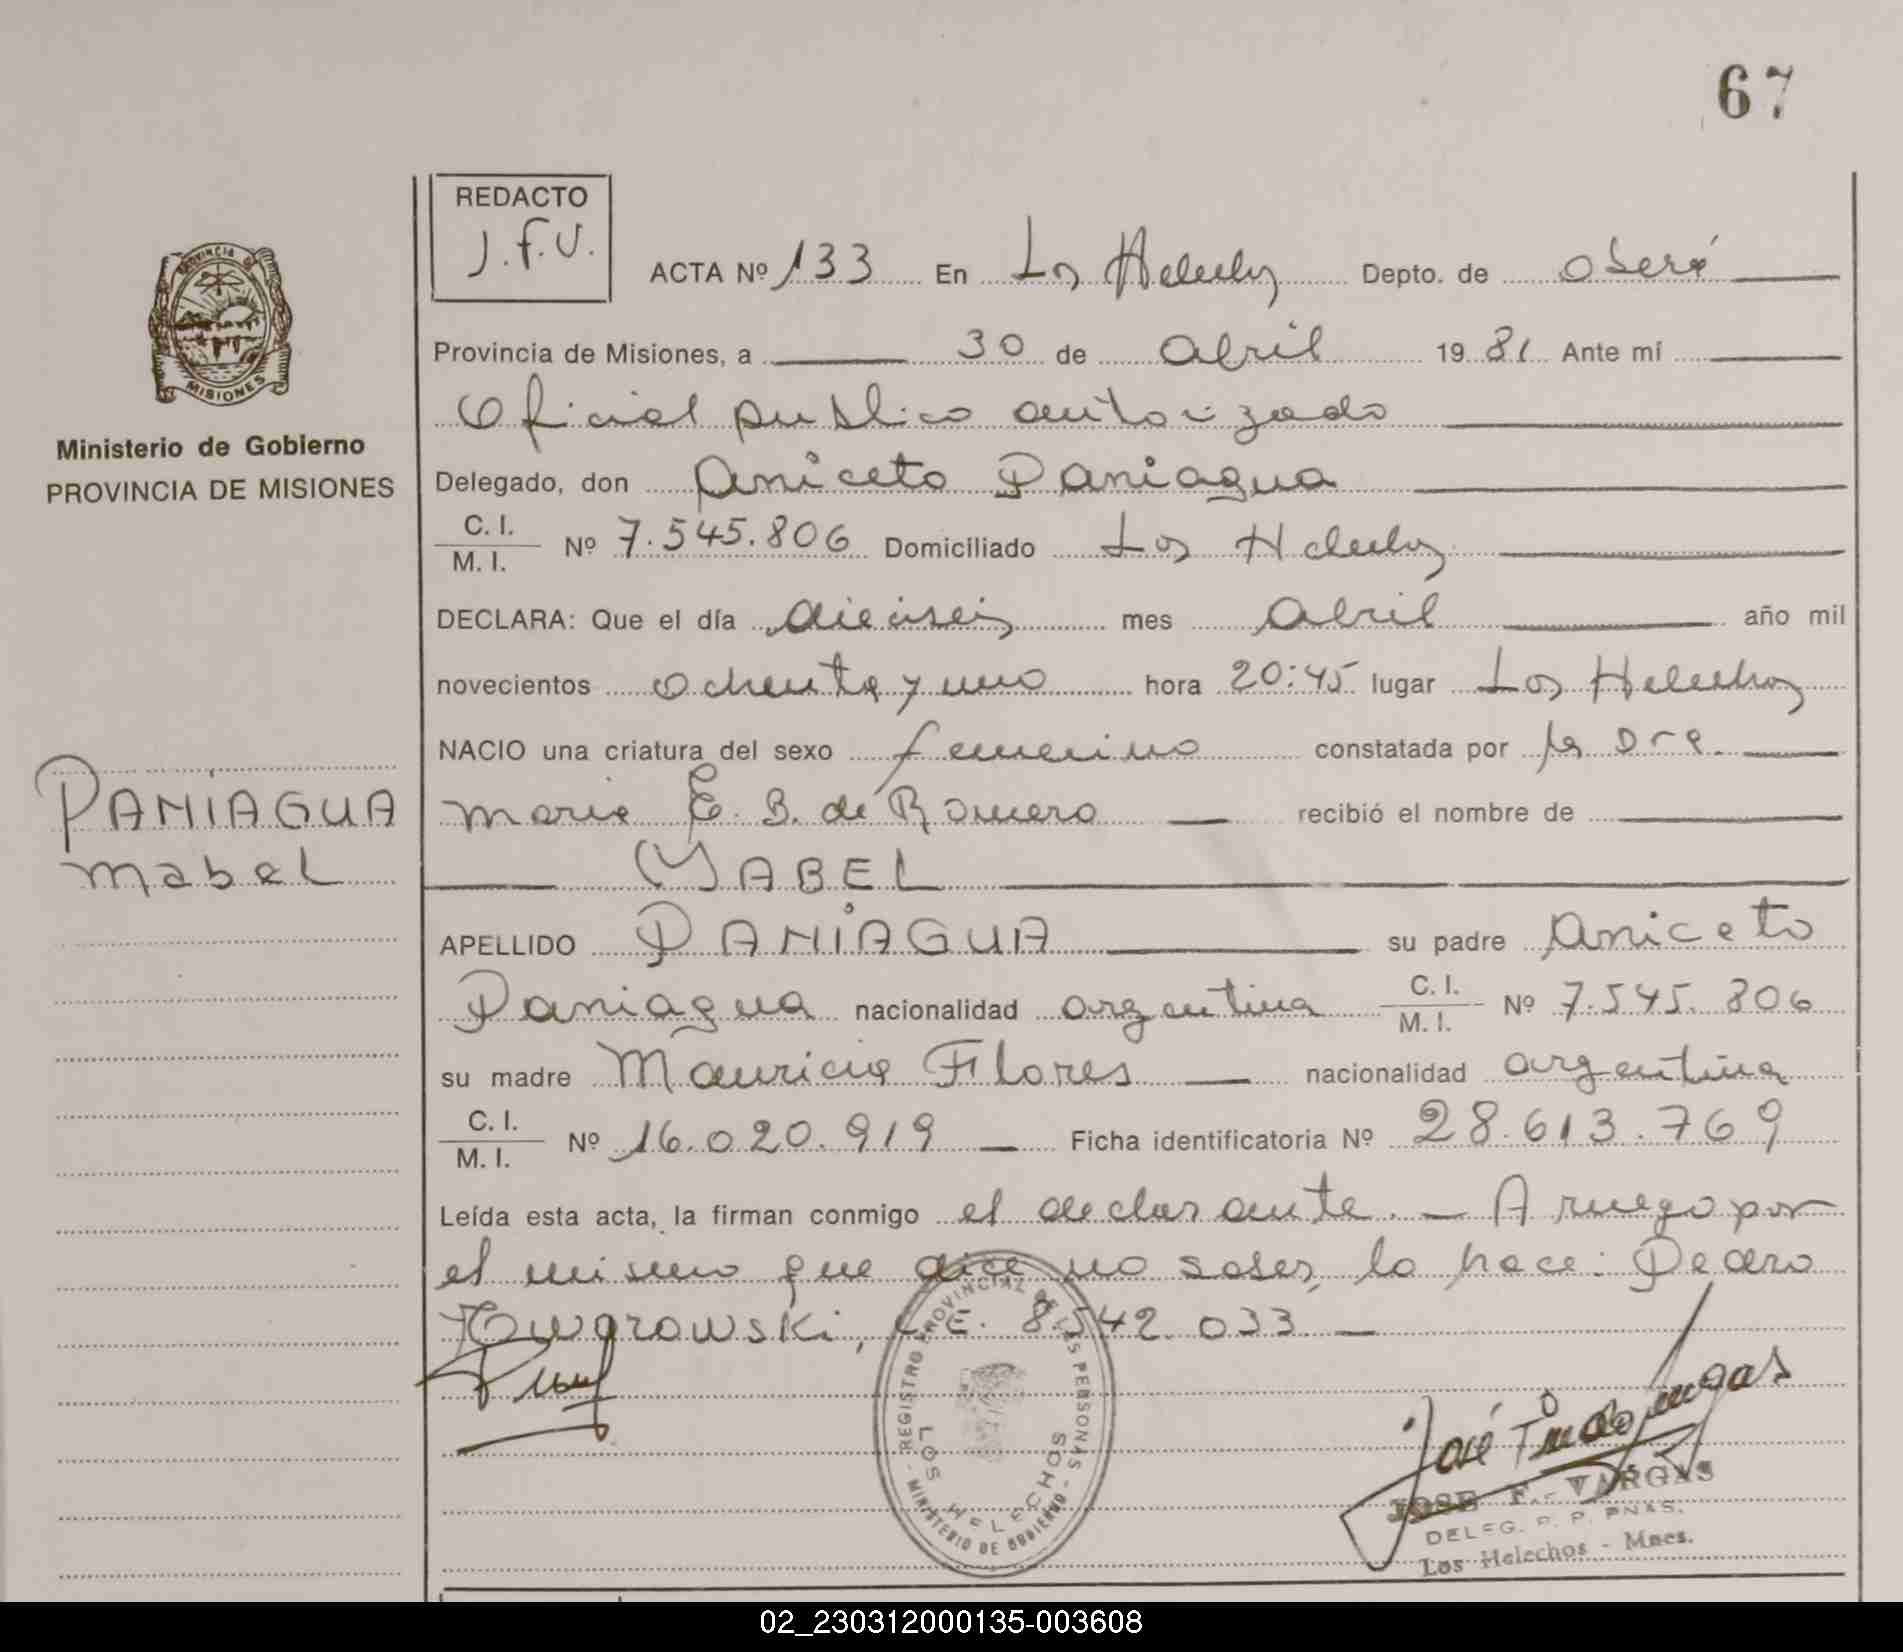 67
REDACTO
J.F.V.
ACTA Nº 133 En Los Helechos Depto. de Oberá
Provincia de Misiones, a 30 de abril 1981 Ante mí
Oficial publico autorizado
Ministerio de Gobierno
PROVINCIA DE MISIONES
Delegado, don Aniceto Paniagua
C. I.
M. I. Nº 7.545.806 Domiciliado Los Helechos
DECLARA: Que el día dieciseis mes abril año mil
novecientos ochenta y uno hora 20:45 lugar Los Helechos
NACIO una criatura del sexo femenino constatada por la Dra.
Maria E. B. de Romero recibió el nombre de
PANIAGUA
Mabel
MABEL
APELLIDO PANIAGUA su padre Aniceto
Paniagua nacionalidad argentina C. I. M. I. Nº 7.545.806
su madre Mauricia Flores nacionalidad argentina
C. I.
M. I. Nº 16.020.919 Ficha identificatoria Nº 28.613.769
Leída esta acta, la firman conmigo el declarante. - A ruego por
el mismo que dice no saber, lo hace: Pedro
C.E. 8.542.033.
PROVINCIA DE
MISIONES
REGISTRO PROVINCIAL DE LAS PERSONAS
LOS HELECHOS
MINISTERIO DE GOBIERNO
JOSE F. VARGAS
DELEG. R. P. PNAS.
Los Helechos - Mnes.
02_230312000135-003608